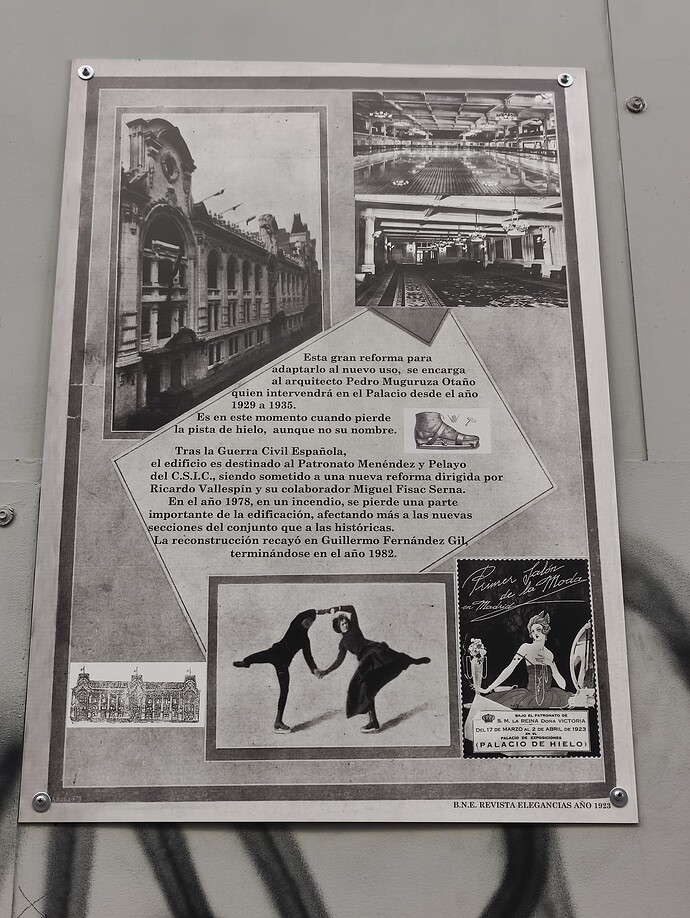 Esta gran reforma para
adaptarlo al nuevo uso, se encarga
al arquitecto Pedro Muguruza Otaño
quien intervendrá en el Palacio desde el año
1929 a 1935.
Es en este momento cuando pierde
la pista de hielo, aunque no su nombre.
Tras la Guerra Civil Española,
el edificio es destinado al Patronato Menéndez y Pelayo
del C.S.I.C., siendo sometido a una nueva reforma dirigida por
Ricardo Vallespín y su colaborador Miguel Fisac Serna.
En el año 1978, en un incendio, se pierde una parte
importante de la edificación, afectando más a las nuevas
secciones del conjunto que a las históricas.
La reconstrucción recayó en Guillermo Fernández Gil,
terminándose en el año 1982.
Primer Salón
de la Moda
en Madrid
BAJO EL PATRONATO DE
S. M. LA REINA DOÑA VICTORIA
DEL 17 DE MARZO AL 2 DE ABRIL DE 1923
EN EL
PALACIO DE EXPOSICIONES
(PALACIO DE HIELO)
B.N.E. REVISTA ELEGANCIAS AÑO 1923